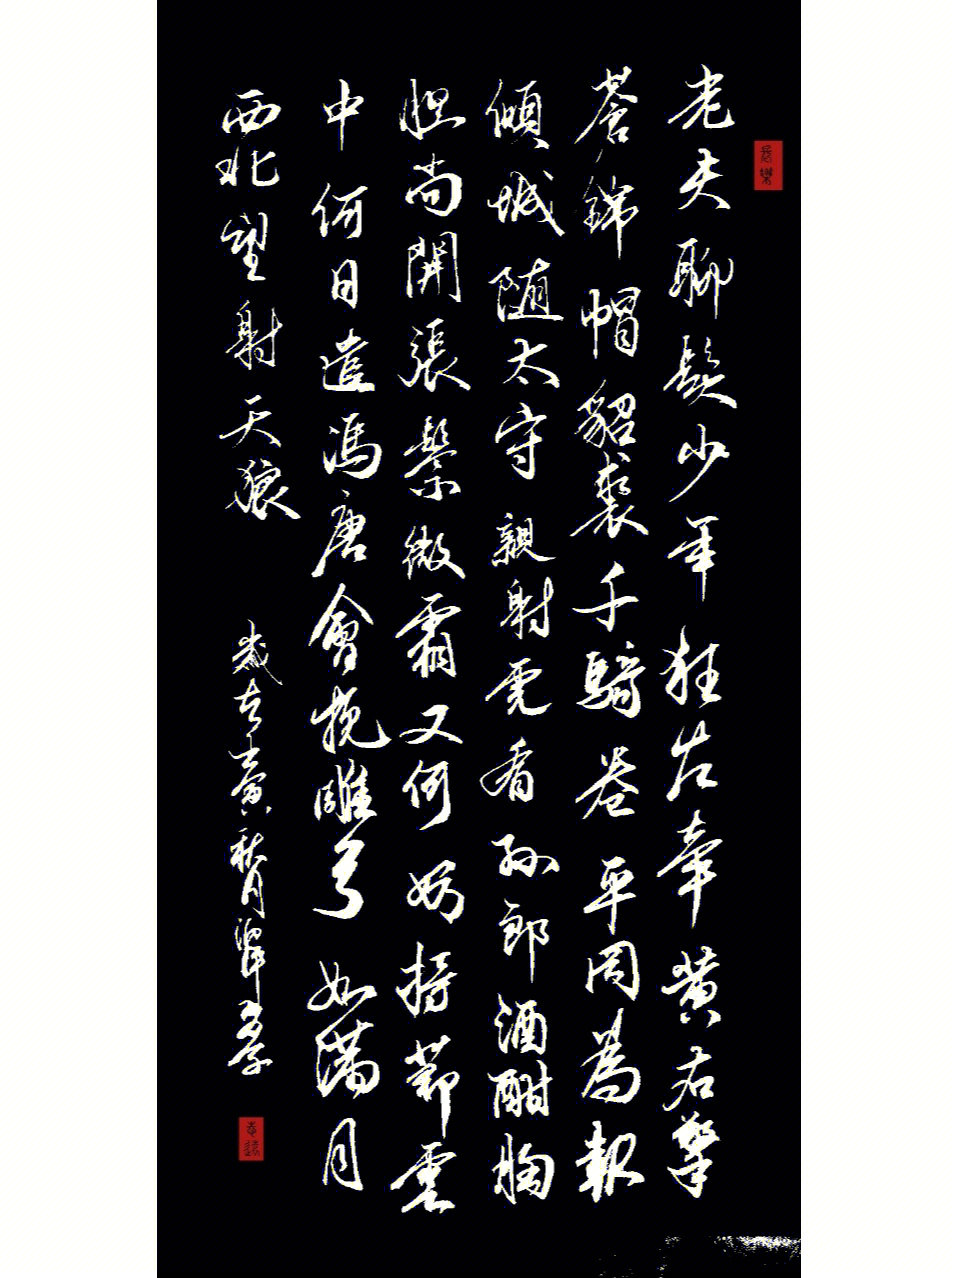 老夫聊髮少年狂左牽黄右擎
蒼錦帽貂裘千騎卷平岡為報
傾城随太守親射虎看孙郎酒酣胸
胆尚開張鬢微霜又何妨持節雲
中何日遣馮唐會挽雕弓如满月
西北望射天狼
秋月